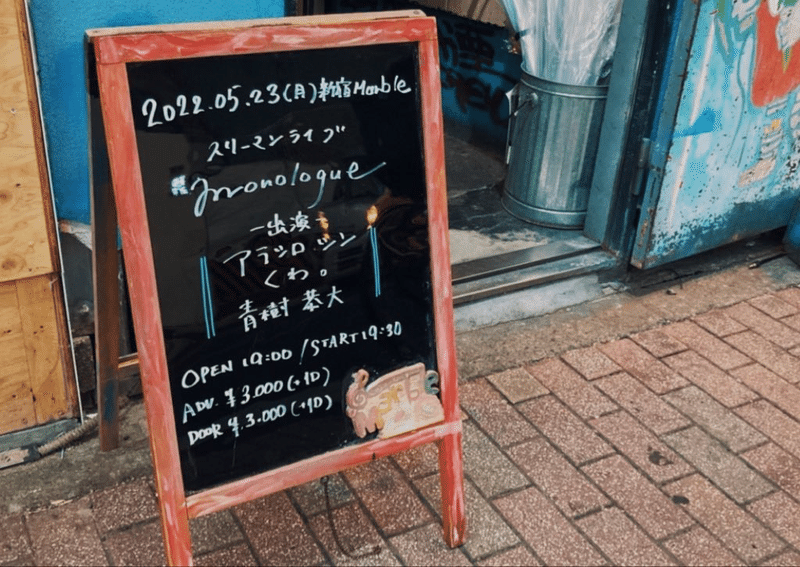 2022.05.23(月)新宿Marble
スリーマンライブ
monologue
-出演-
アラシロ ジン
くわ。
青樹 恭大
OPEN 19:00 / START 19:30
ADV. ¥3.000(+1D)
DOOR ¥.3.000(+1D)
Marble